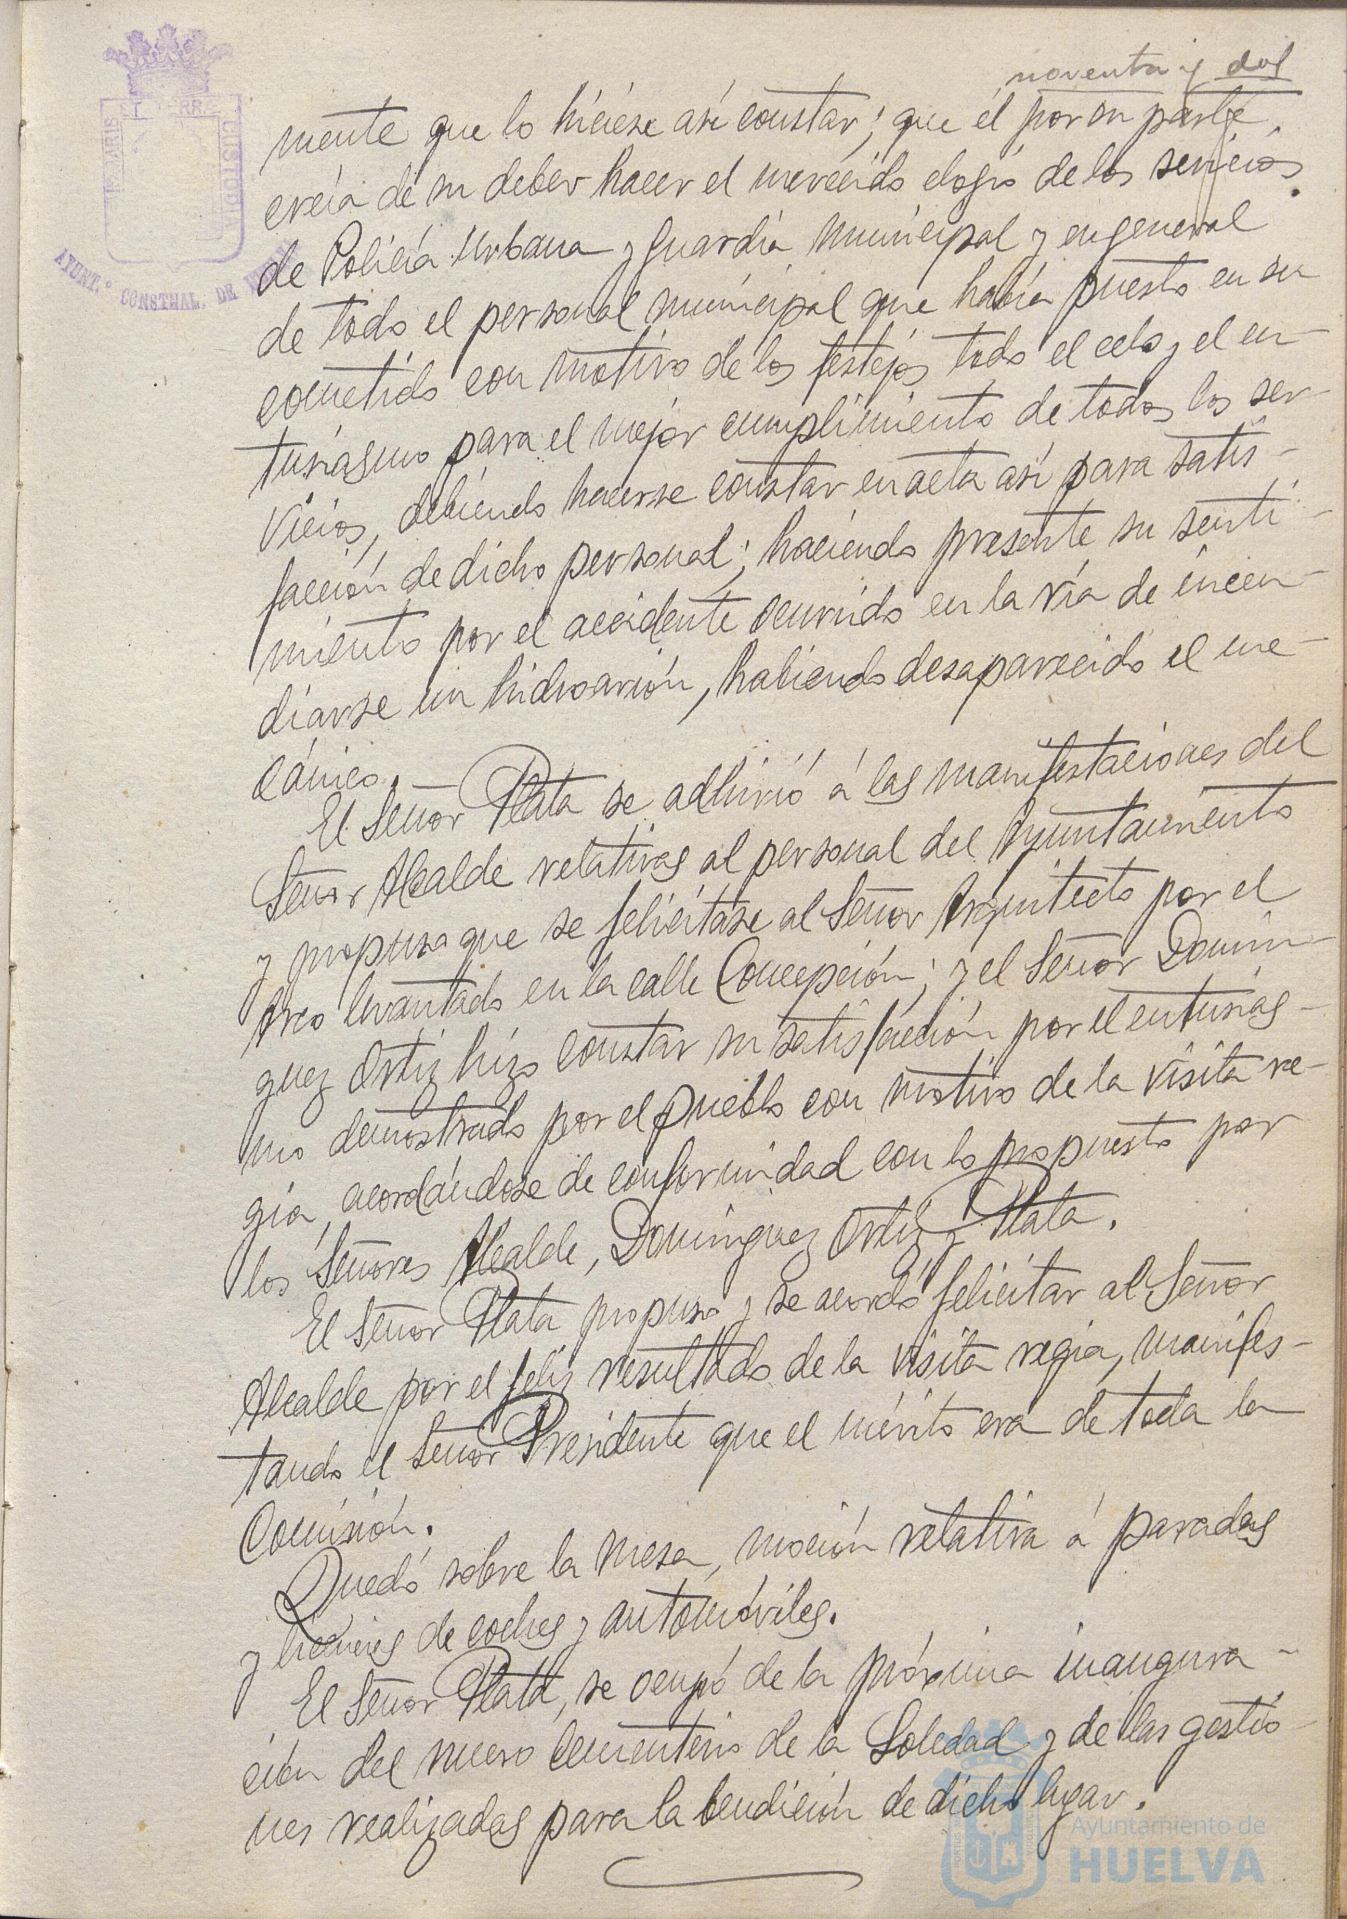 noventa y dos
mente que lo hiciese así constar; que él por su parte
creía de su deber hacer el merecido elogio de los servicios
de Policía Urbana y Guardia Municipal y en general
de todo el personal municipal que había puesto en su
cometido con motivo de los festejos todo el celo y el en-
tusiásmo para el mejor cumplimiento de todos los ser-
vicios, debiendo hacerse constar en acta así para satis-
facción de dicho personal; haciendo presente su senti-
miento por el accidente ocurrido en la ría de incen-
diarse un hidroavión, habiendo desaparecido el me-
cánico.
El Señor Plata se adhirió á las manifestaciones del
Señor Alcalde relativas al personal del Ayuntamiento
y propuso que se felicitase al Señor Arquitecto por el
Arco levantado en la calle Concepción; y el Señor Domin-
guez Ortiz hizo constar su satisfacción por el entusiás-
mo demostrado por el pueblo con motivo de la visita re-
gia, acordándose de conformidad con lo propuesto por
los Señores Alcalde, Dominguez Ortiz y Plata.
El Señor Plata propuso y se acordó felicitar al Señor
Alcalde por el feliz resultado de la visita regia, manifes-
tando el Señor Presidente que el mérito era de toda la
Comisión.
Quedó sobre la mesa, moción relativa á paradas
y de coches y automóviles.
El Señor Plata, se ocupó de la próxima inaugura-
ción del nuevo Cementerio de la Soledad y de las gestio-
nes realizadas para la bendición de dicho lugar.
AYUNT.º CONSTNAL. DE
CUSTODIA
Ayuntamiento de
HUELVA